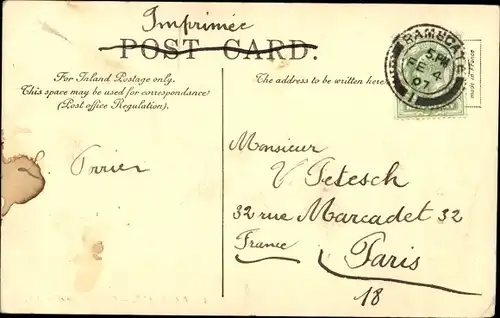 Imprimée
POST CARD.
For Inland Postage only.
This space may be used for correspondance
(Post office Regulation).
The address to be written here
RAMSGATE
5 PM
FE 4
07
made in France
Monsieur
V Petesch
32 rue Marcadet 32
France
Paris
18